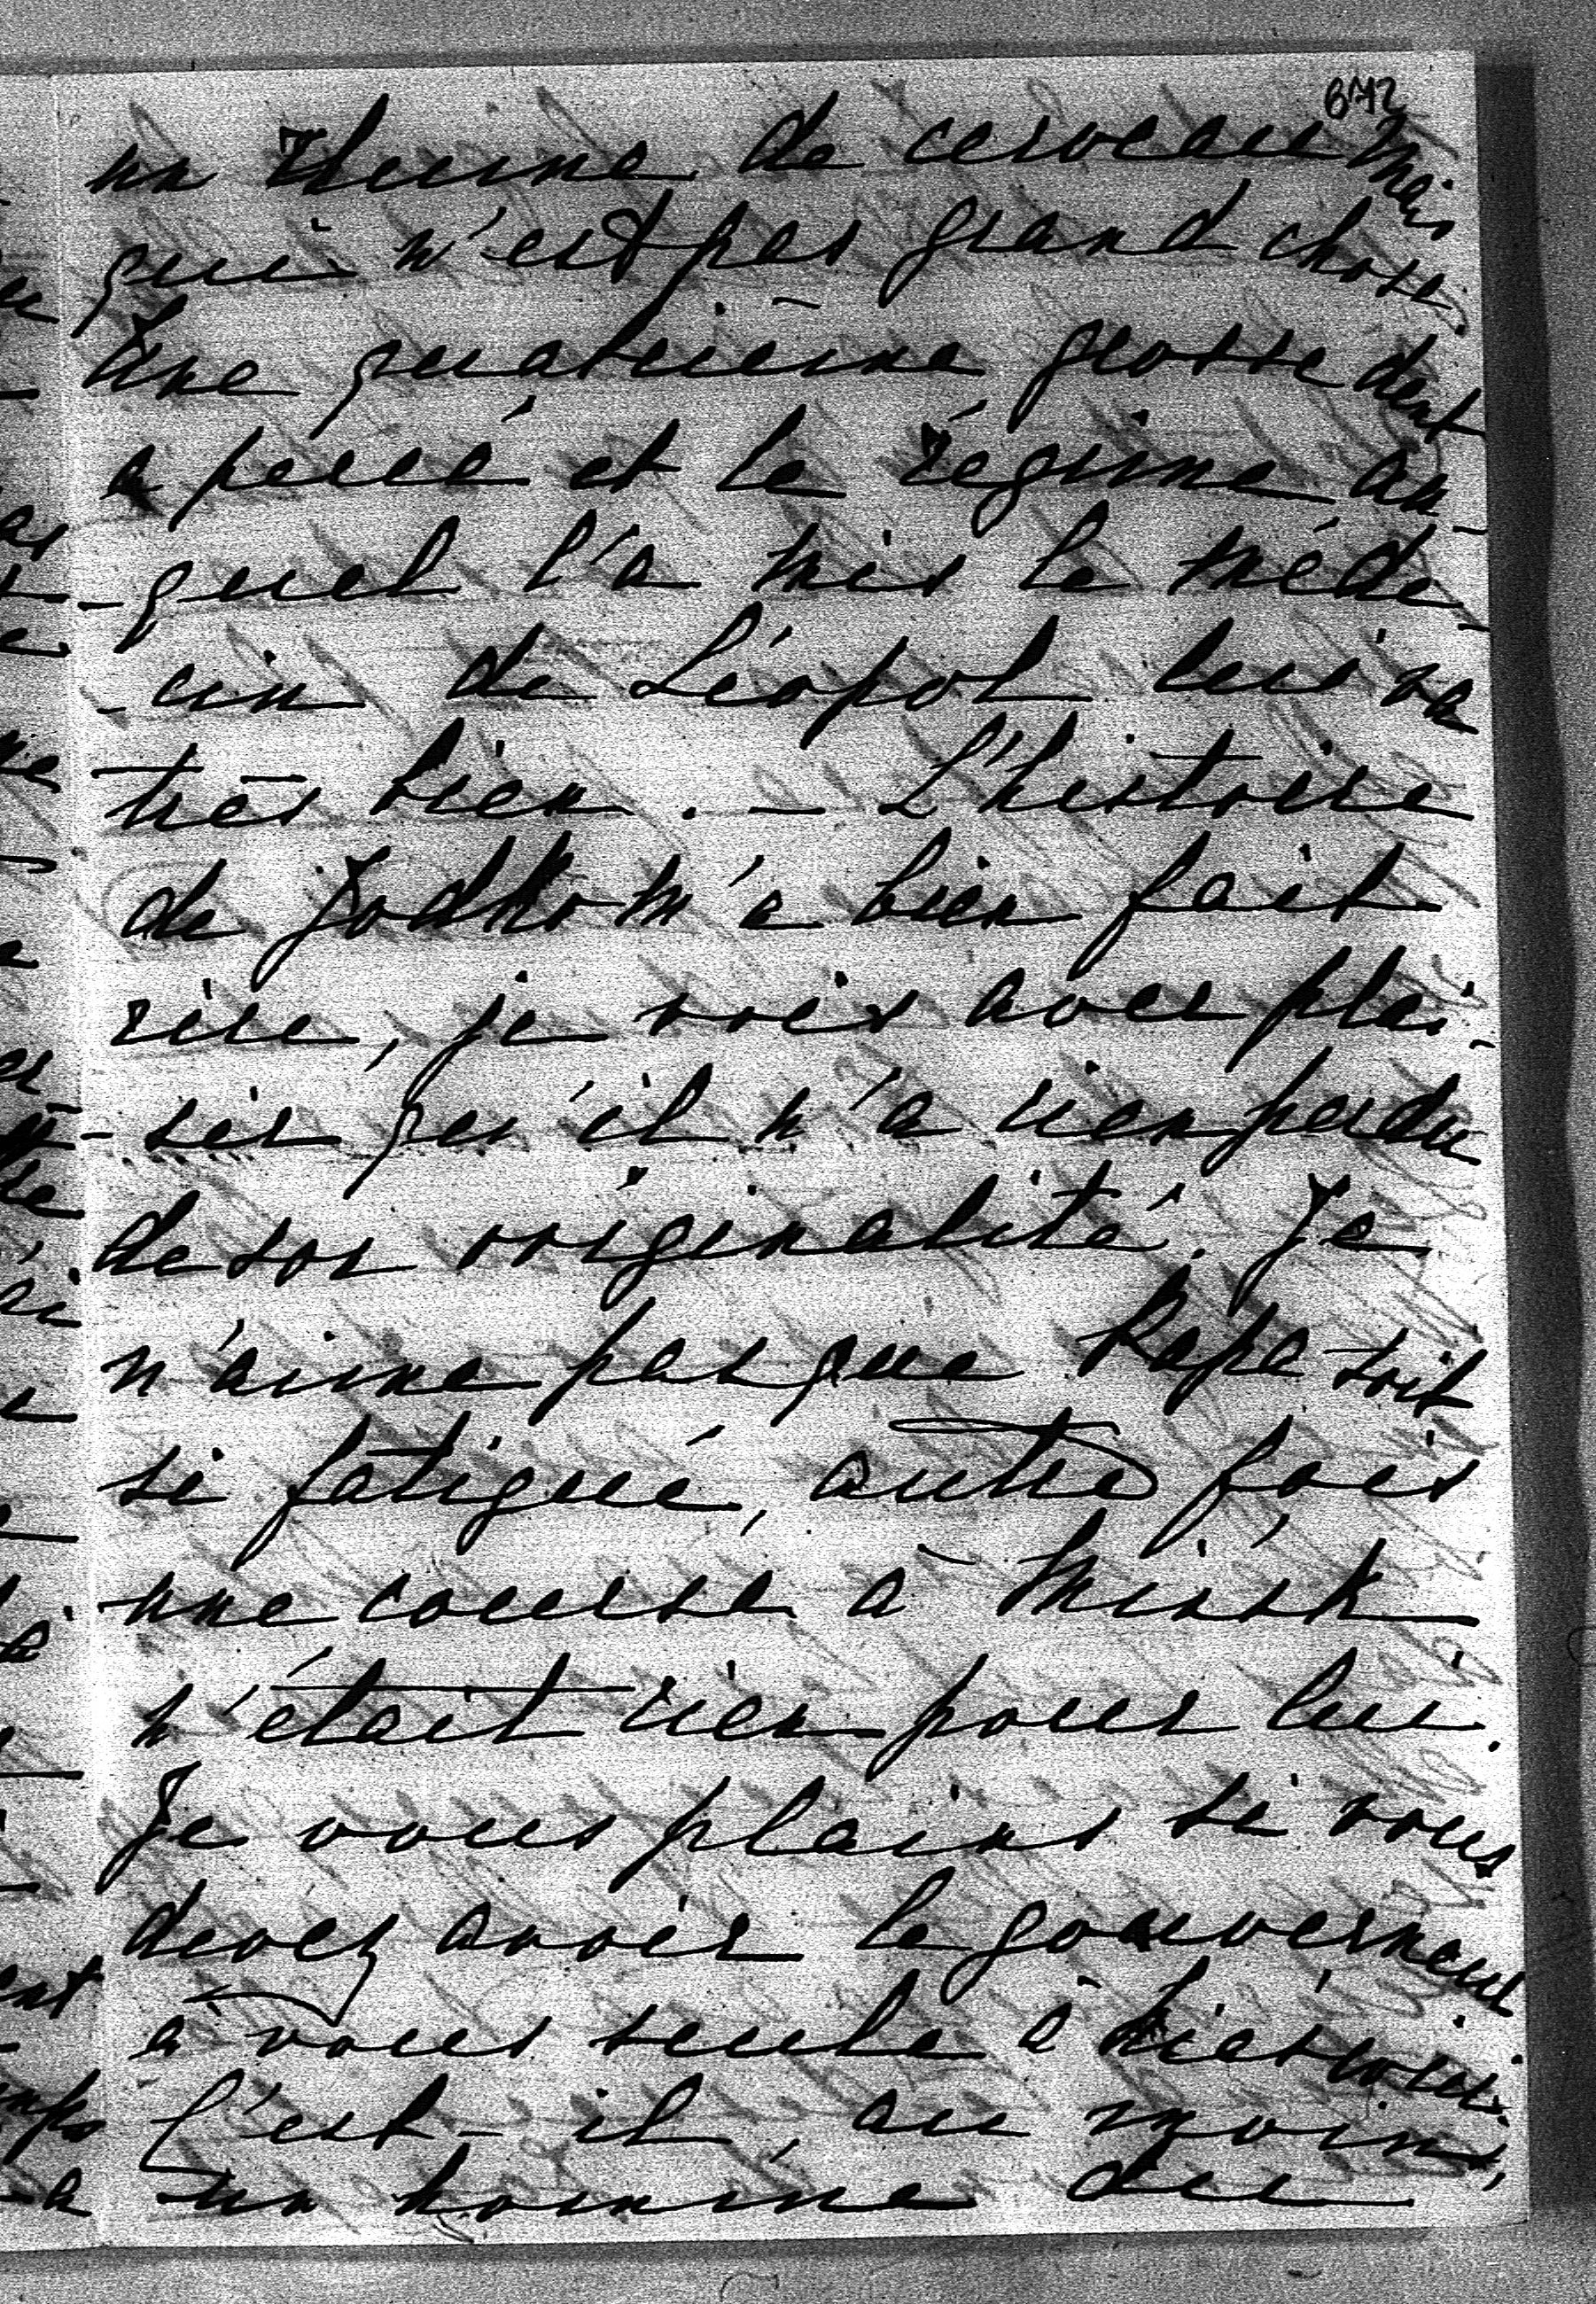 6712
un rhume de cerveau mais
qui n'est pas grand chose.
Une quatrième grosse dent
a percé et le régime au-
-quel l'a mis le méde-
-cin de Léopol lui va
très bien. — L'histoire
de Jodko m'a bien fait
rire, je vois avec plai-
-sir qu'il n'a rien perdu
de son originalité. Je
n'aime pas que Papa soit
si fatigué, autre fois
une course à Minsk
n'était rien pour lui.
Je vous plains si vous
devez avoir le gouverneur
à vous seule à
l'est-il, au moins,
un homme du